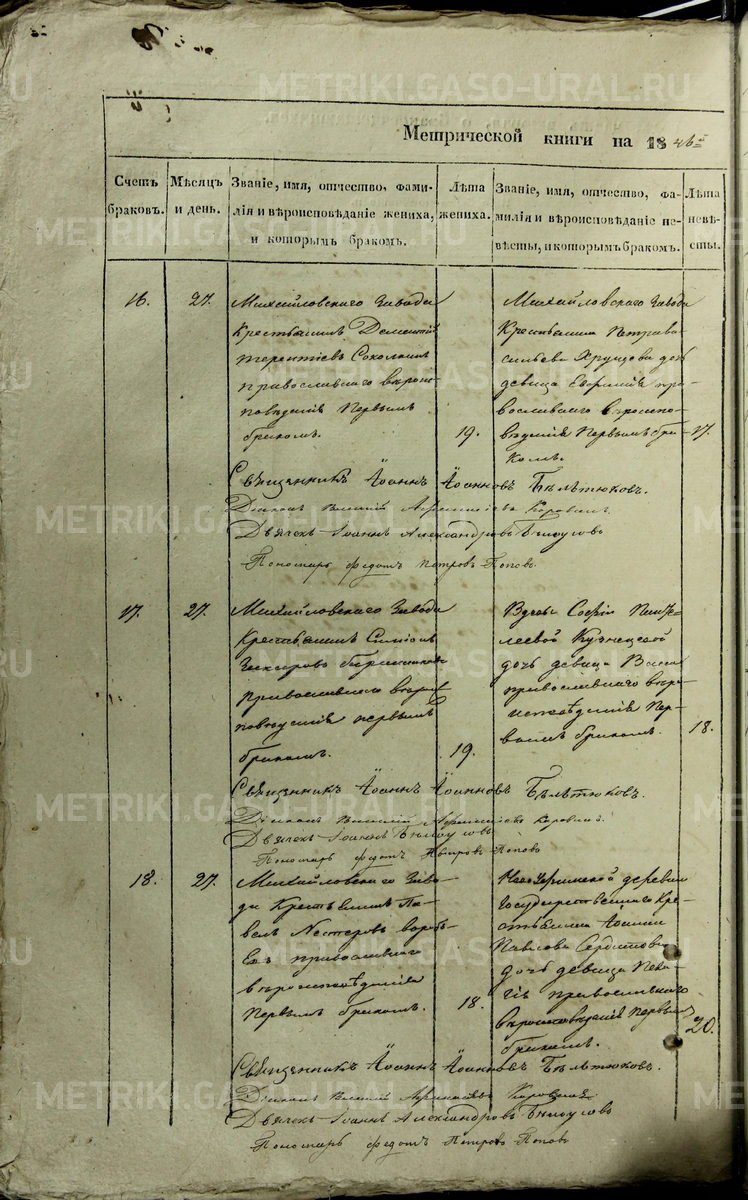 Метрической книги на 1846
Счетъ браковъ.
Мѣсяцъ и день.
Званіе, имя, отчество, фами-
лія и вѣроисповѣданіе жениха,
и которымъ бракомъ.
Лѣта жениха.
Званіе, имя, отчество, фа-
милія и вѣроисповѣданіе не-
вѣсты, и которымъ бракомъ.
Лѣта невѣсты.
16.
27.
Михайловскаго завода
Крестьянинъ Дементій
терентіевъ Соколинъ
православнаго вѣроис-
повѣданія Первымъ
бракомъ.
19.
Михайловскаго завода
Крестьянина Петра Ва-
сильева Хрущова дочь
девица Евфимія пра-
вославнаго вѣроиспо-
вѣданія Первымъ бра-
комъ.
17.
Священникъ Іоаннъ Іоанновъ Бѣлѣтюковъ.
Діаконъ
Дьячекъ Іоаннъ Александровъ Бѣлоусовъ
Пономарь Федотъ Петровъ Поповъ
17.
27.
Михайловскаго завода
Крестьянинъ
православнаго вѣрои
повѣданія первымъ
бракомъ.
19.
Вдовы Софіи
Кузнецовой
дочь девица
православнаго вѣро-
исповѣданія Пер-
вымъ бракомъ.
18.
Священникъ Іоаннъ Іоанновъ Бѣлѣтюковъ.
Діаконъ
Дьячекъ Іоаннъ Бѣлоусовъ
Пономарь Федотъ Петровъ Поповъ
18.
27.
Михайловскаго заво-
да Крестьянинъ Па-
велъ Нестеровъ вороб-
евъ православнаго
вѣроисповѣданія
Первымъ бракомъ.
18.
деревни
государственнаго Кре-
стьянина Іоанна
Павлова
дочь девица Пела-
гія православнаго
вѣроисповѣданія Первымъ
бракомъ.
20.
Священникъ Іоаннъ Іоанновъ Бѣлѣтюковъ.
Діаконъ
Дьячекъ Іоаннъ Александровъ Бѣлоусовъ
Пономарь Федотъ Петровъ Поповъ
METRIKI.GASO-URAL.RU